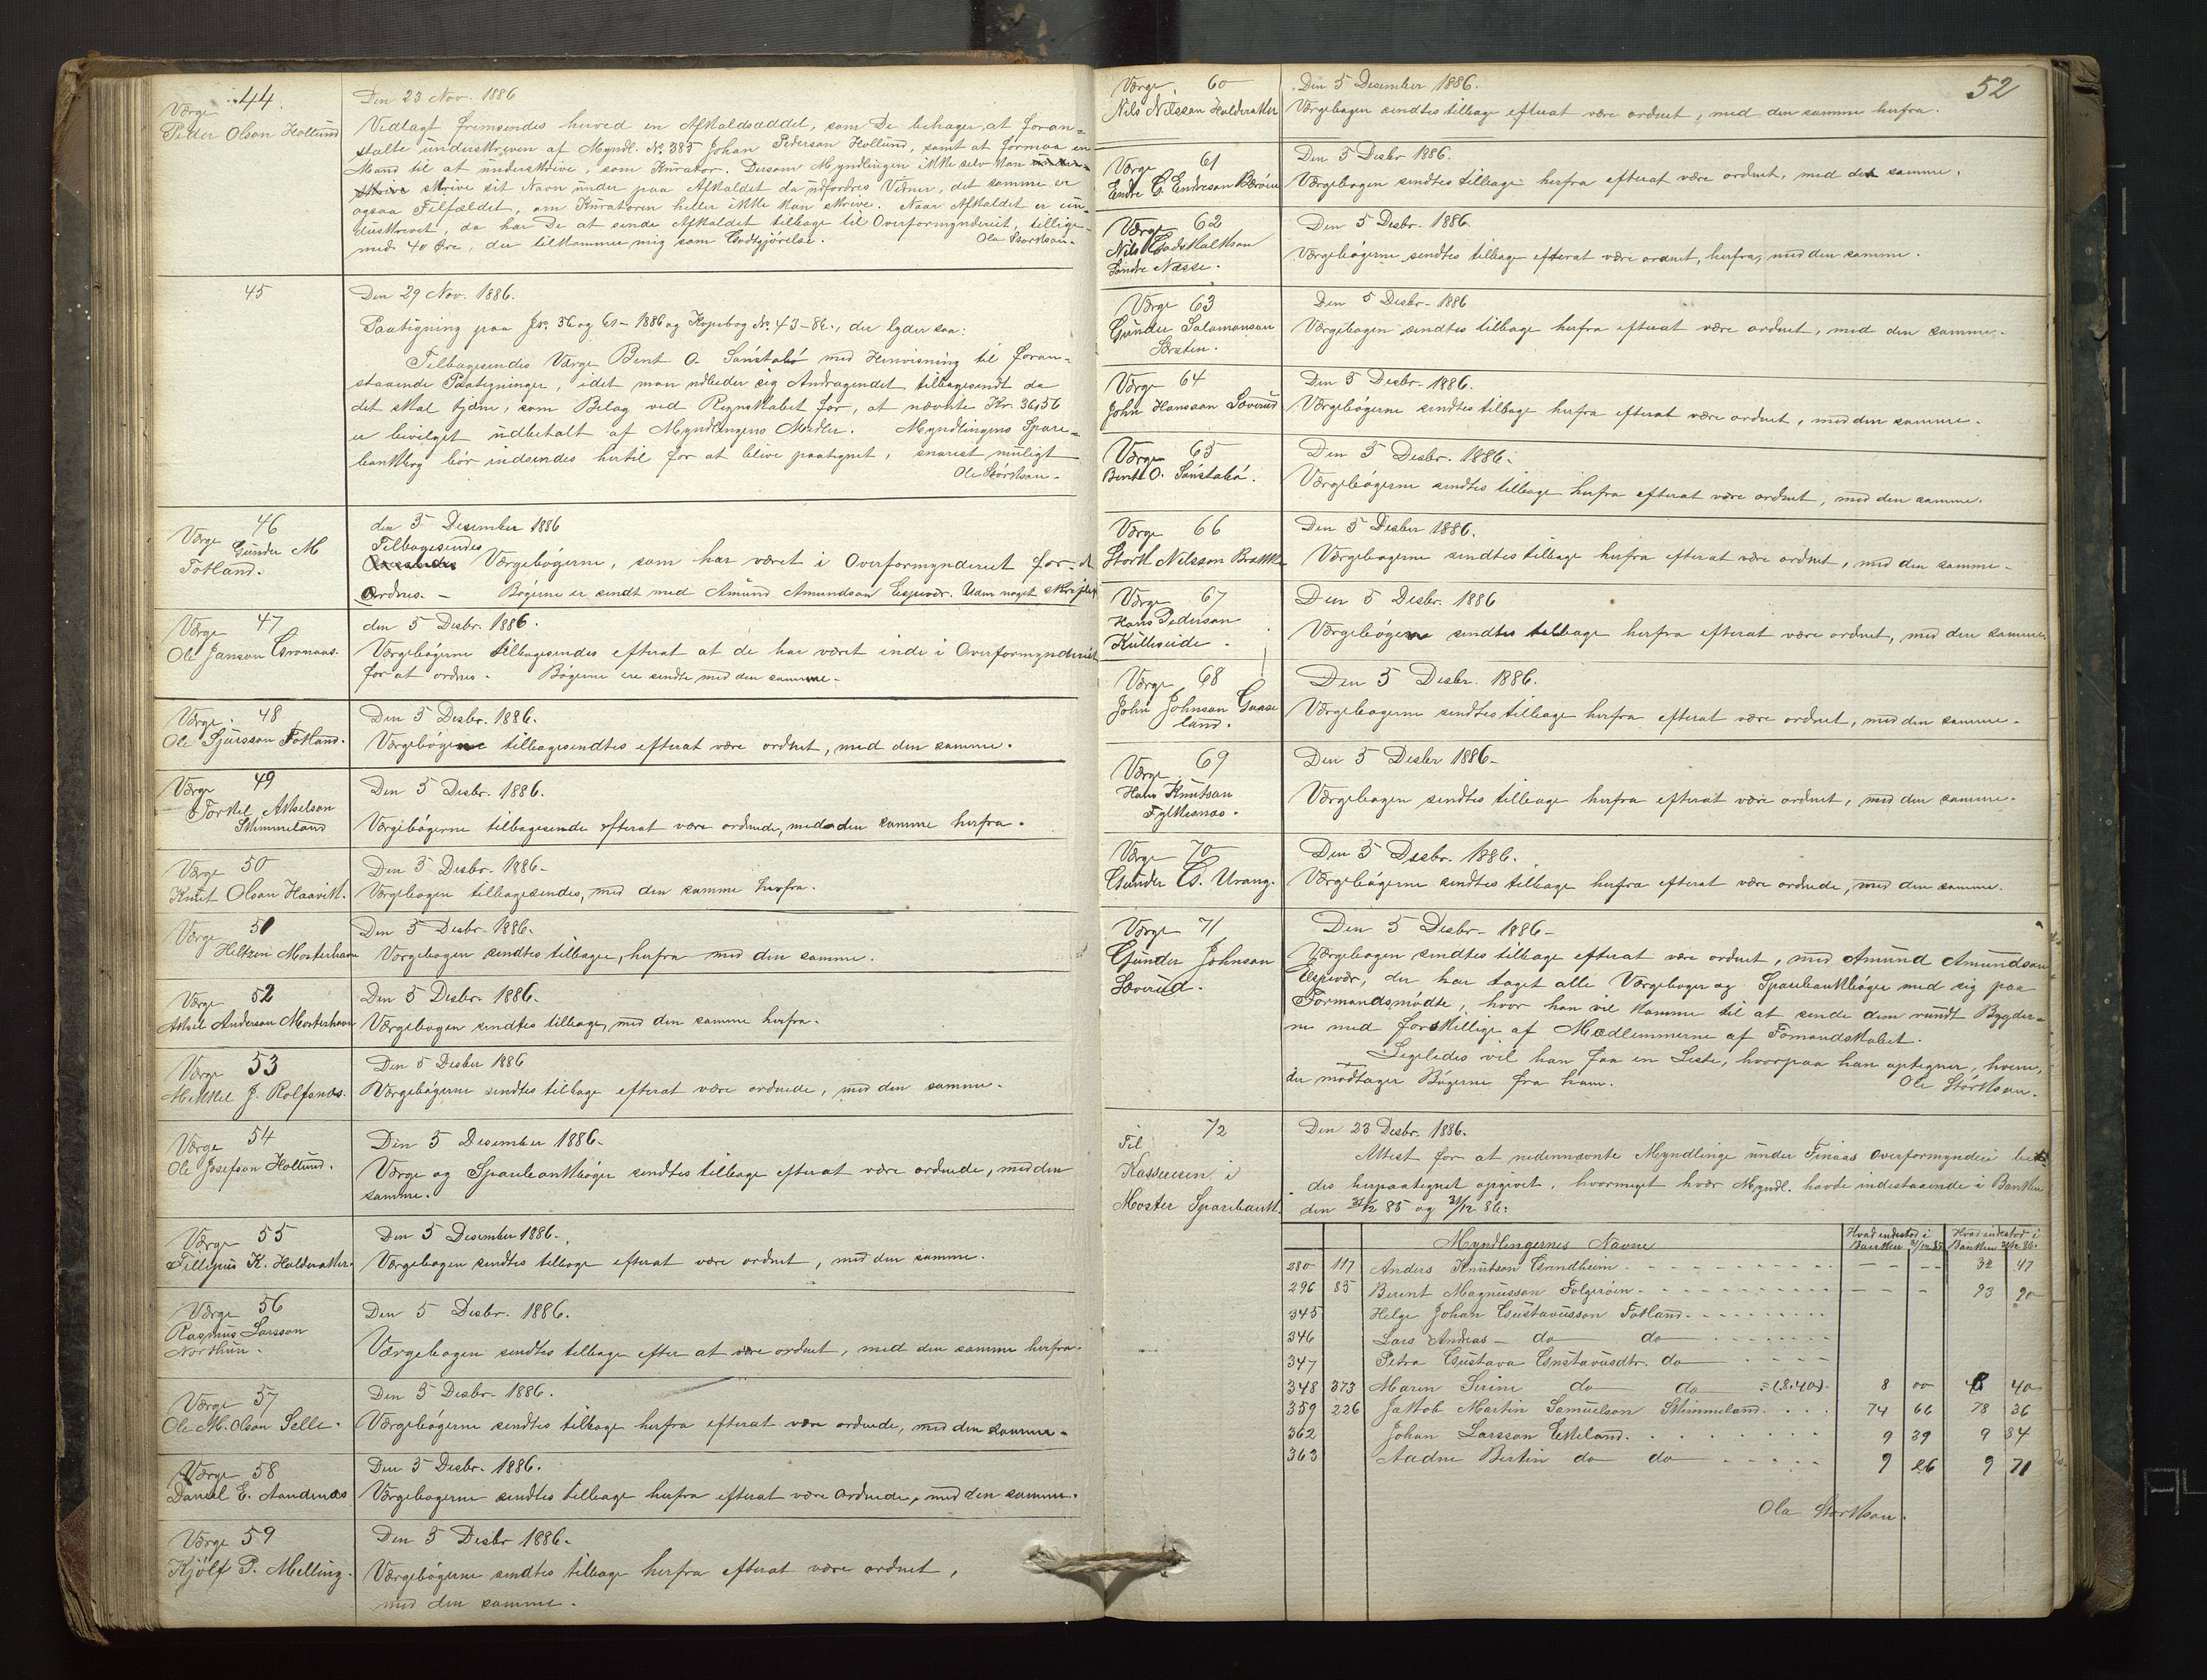 44.
Værge
Peder Olson Hollund
Den 23 Nov. 1886
Vedlagt fremsendes herved en Afkaldsæddel, som De behager, at foran-
stalte underskreven af Myndl. No 385 Johan Pederson Hollund, samt at formaa en
Mand til at underskrive, som Kurator. Dersom Myndlingen ikke selv kan
skrive sit Navn under paa Afkaldet da udfordres Vidner, det samme er
ogsaa Tilfældet, om Kuratoren heller ikke kan skrive. Naar Afkaldet er un-
derskrevet, da har De at sende Afkaldet tilbage til Overformynderiet, tillige-
med 40 Øre, der tilkommer mig som Godtgjörelse. Ola Storkson.
45
Den 29 Nov. 1886.
Paategning paa Jr. 36 og 61-1886 og Kopibog No. 43-86., der lyder saa:
Tilbagesendes Værge Bent O. Sønstabö med Henvisning til foran-
staaende Paategninger, idet man udbeder sig Andragendet tilbagesendt da
det skal tjene, som Bilag ved Regnskabet for, at nævnte Kr. 36,56
er bevilget udbetalt af Myndlingens Midler. Myndlingens Spare-
bankbog bör indsendes hertil for at blive paategnet, snarest muligt
Ole Störkson.
46
Værge Gunder M
Totland.
den 5 Desember 1886
Tilbagesendes
Værgebøgerne, som har været i Overformynderiet for at
Ordnes. - Bögerne er sendt med Amund Amundson Espevær. Uden noget skriftligt
47
Værge
Ole Janson Grønaas.
den 5 Desbr. 1886.
Værgebögerne tilbagesendes efterat at de har været inde i Overformynderiet
for at ordnes. Bögerne ere sendte med den samme.
48
Værge.
Ole Sjursson Totland.
Den 5 Desbr. 1886.
Værgebögerne tilbagesendtes efterat være ordnet, med den samme.
49
Værge
Torkel Akselson
Skimmeland
Den 5 Desbr. 1886.
Værgebögerne tilbagesende efterat være ordnede, med den samme herfra.
Værge 50
Knut Olson Haavik.
Den 5 Desbr. 1886.
Værgebogen tilbagesendes, med den samme herfra.
Værge 51
Heltzen Mosterhavn
Den 5 Desbr. 1886.
Værgebogen sendtes tilbage, herfra med den samme.
Værge 52
Aksel Anderson Mosterhavn
Den 5 Desbr. 1886.
Værgebogen sendtes tilbage, med den samme herfra.
Værge 53
Mikkel J. Rolfsnæs.
Den 5 Desber 1886
Værgebögerne sendtes tilbage efterat være ordnede, med den samme.
Værge 54
Ole Josefson Hollund.
Den 5 Desember 1886.
Værge og Sparebankböger sendtes tilbage efterat være ordnede, med den
samme.
Værge 55
Fillipus K. Halderaker.
Den 5 Desember 1886.
Værgebogen sendtes tilbage efterat være ordnet, med den samme.
Værge 56
Rasmus Larsson
Northun.
Den 5 Desbr. 1886.
Værgebogen sendtes tilbage efter at være ordnet, med den samme herfra.
Værge 57
Ole M. Olson Selle.
Den 5 Desbr. 1886.
Værgebögerne sendtes tilbage herfra efterat være ordnede, med den samme.
Værge 58
Daniel E. Aandenæs
Den 5 Desbr. 1886.
Værgebogerne sendtes tilbage herfra efterat være Ordnede, med den samme.
Værge 59
Kjölf P. Melling.
Den 5 Desbr 1886.
Værgebögerne sendtes tilbage herfra efterat være ordnet,
med den samme.
52
Værge 60
Nils Nilsson Halderaker
Den 5 Desember 1886.
Værgebogen sendtes tilbage efterat være ordnet, med den samme herfra.
Værge 61
Endre E. Endreson Børöen
Den 5 Desbr 1886.
Værgebogen sendtes tilbage herfra efterat være ordnet, med den samme.
Værge 62
Nils Godskalkson
Söndre Næsse.
Den 5 Desbr. 1886.
Værgebögerne sendtes tilbage efterat være ordnet, herfra, med den samme.
Værge 63
Gunder Salamonson
Særsten.
Den 5 Desbr. 1886
Værgebogen sendtes tilbage herfra efterat være ordnet, med den samme.
Værge 64
John Hansson Sæverud
Den 5 Desbr. 1886.
Værgebögerne sendtes tilbage herfra efterat være ordnet, med den samme.
Værge 65
Bent O. Sönstabö.
Den 5 Desbr. 1886.
Værgebögerne sendtes tilbage herfra efterat være ordnet, med den samme.
Værge 66
Stork Nilsson Brække
Den 5 Desber 1886.
Værgebogerne sendtes tilbage herfra efterat være ordnet, med den samme.
Værge 67
Hans Pederson
Kulleseide.
Den 5 Desbr. 1886
Værgebögerne sendtes tilbage herfra efterat være ordnet, med den samme.
Værge 68
John Johnson Gaase
land.
Den 5 Desbr. 1886.
Værgebogerne sendtes tilbage herfra efterat være ordnet, med den samme.
Værge 69
Hans Knutson
Fylkesnæs.
Den 5 Desber 1886.
Værgebogen sendtes tilbage herfra efterat være ordnet, med den samme.
Værge 70
Gunder G. Urang.
Den 5 Desbr. 1886.
Værgebögerne sendtes tilbage herfra efterat være ordnede, med den samme.
Værge 71
Gunder Johnson
Sæverud.
Den 5 Desbr. 1886.
Værgebogen sendtes tilbage efterat være ordnet, med Amund Amundson
Espevær, der har taget alle Værgeboger og Sparebankböger med sig paa
Formandsmödte, hvor han vil komme til at sende dem rundt Bygder-
ne med forskjellige af Medlemmerne af Fomandskabet.
Ligeledes vil han faa en Liste, hvorpaa han optegner, hvem,
der modtager Bögerne fra ham. Ole Störkson.
72
Til
Kasseren i
Moster Sparebank.
Den 23 Desbr. 1886.
Attest for at nedennævnte Myndlinge under Finaas Overformynderi be
des herpaategnet opgivet, hvormeget hvær Myndl. havde indestaaende i Banken
den 31/12 85 og 31/12 86:
Myndlingernes Navne | Hvad indestod i Banken 31/12 85 | Hvad indestod i Banken 31/12 86.
280 | 117 | Anders Knutson Grindheim | - - | - - | 32 | 47
296 | 85 | Berent Magnusson Folgeröen | - - | - | 93 | 90
345 | Helge Johan Gustavusson Totland
346 | Lars Andreas - do do
347 | Petra Gustava Gustavusdtr. do
348 | 373 | Maren Serine do do =(8.40) | 8 | 00 | 8 | 40
359 | 226 | Jakob Martin Samuelson Skimmeland | 74 | 66 | 78 | 36
362 | Johan Larsson Eikeland | 9 | 39 | 9 | 84
363 | Aadne Bertin do do | 9 | 26 | 9 | 71
Ola Storkson.